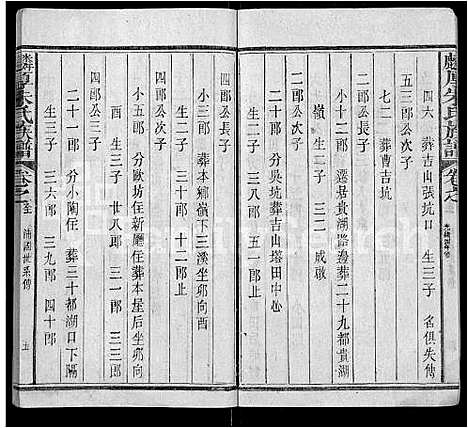 四六 葬吉山張坑口 生三子 名俱失傳
五三郎公次子
七二 葬曹吉坑
四郎公次子
小十二郎 遷居貴湖路邊葬二十九都貴湖
嶺 生二子 三一 咸啟
二郎公次子
小四郎 分吳坑住 葬吉山塔田中心
生二子 三八郎 五一郎止
四郎公長子
小三郎 葬本鄉嶺下三溪坐卯向酉
生二子 三二郎 三一郎止
二郎公長子
小五郎 分歐坊住新廳住葬本屋后坐卯向
酉 生三子 廿八郎 三一郎 三三郎
四郎公三子
二十一郎 分小陶住 葬三十都湖口下隔
生三子 三六郎 三九郎 四十郎
朱氏族譜
卷之
世系傳
五